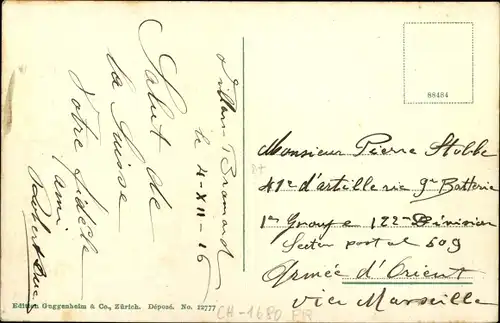 Villars-Bramard
le 4-XII-16
Salut de
la Suisse
Votre fidèle
ami
88484
Monsieur Pierre Stobbe
41e d'artillerie 9e Batterie
1er Groupe 122me Division
Secteur postal 509
Armée d'Orient
via Marseille
Edition Guggenheim & Co., Zürich. Déposé. No. 12777
CH-1680 FR